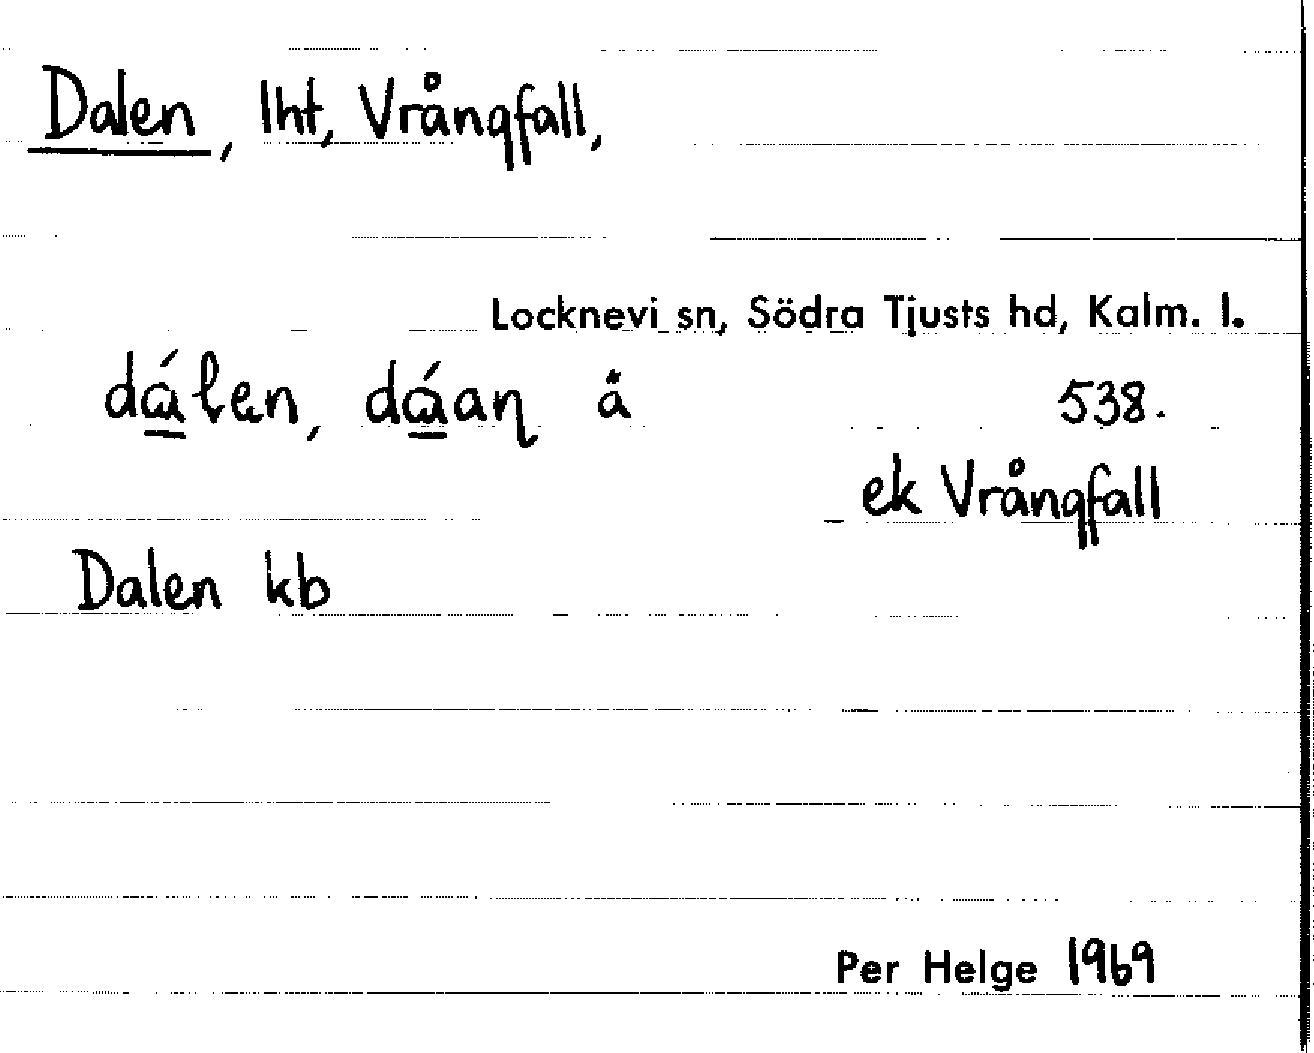 Dalen, lht, Vrångfall,
Locknevi sn, Södra Tjusts hd, Kalm. l.
dá̲len, dá̲aɳ å 538.
ek Vrångfall
Dalen kb
Per Helge 1969